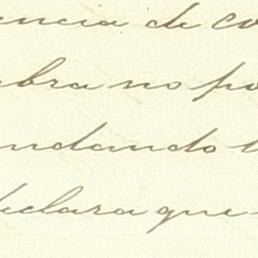 encia de co
bra no po
ndando
declara que